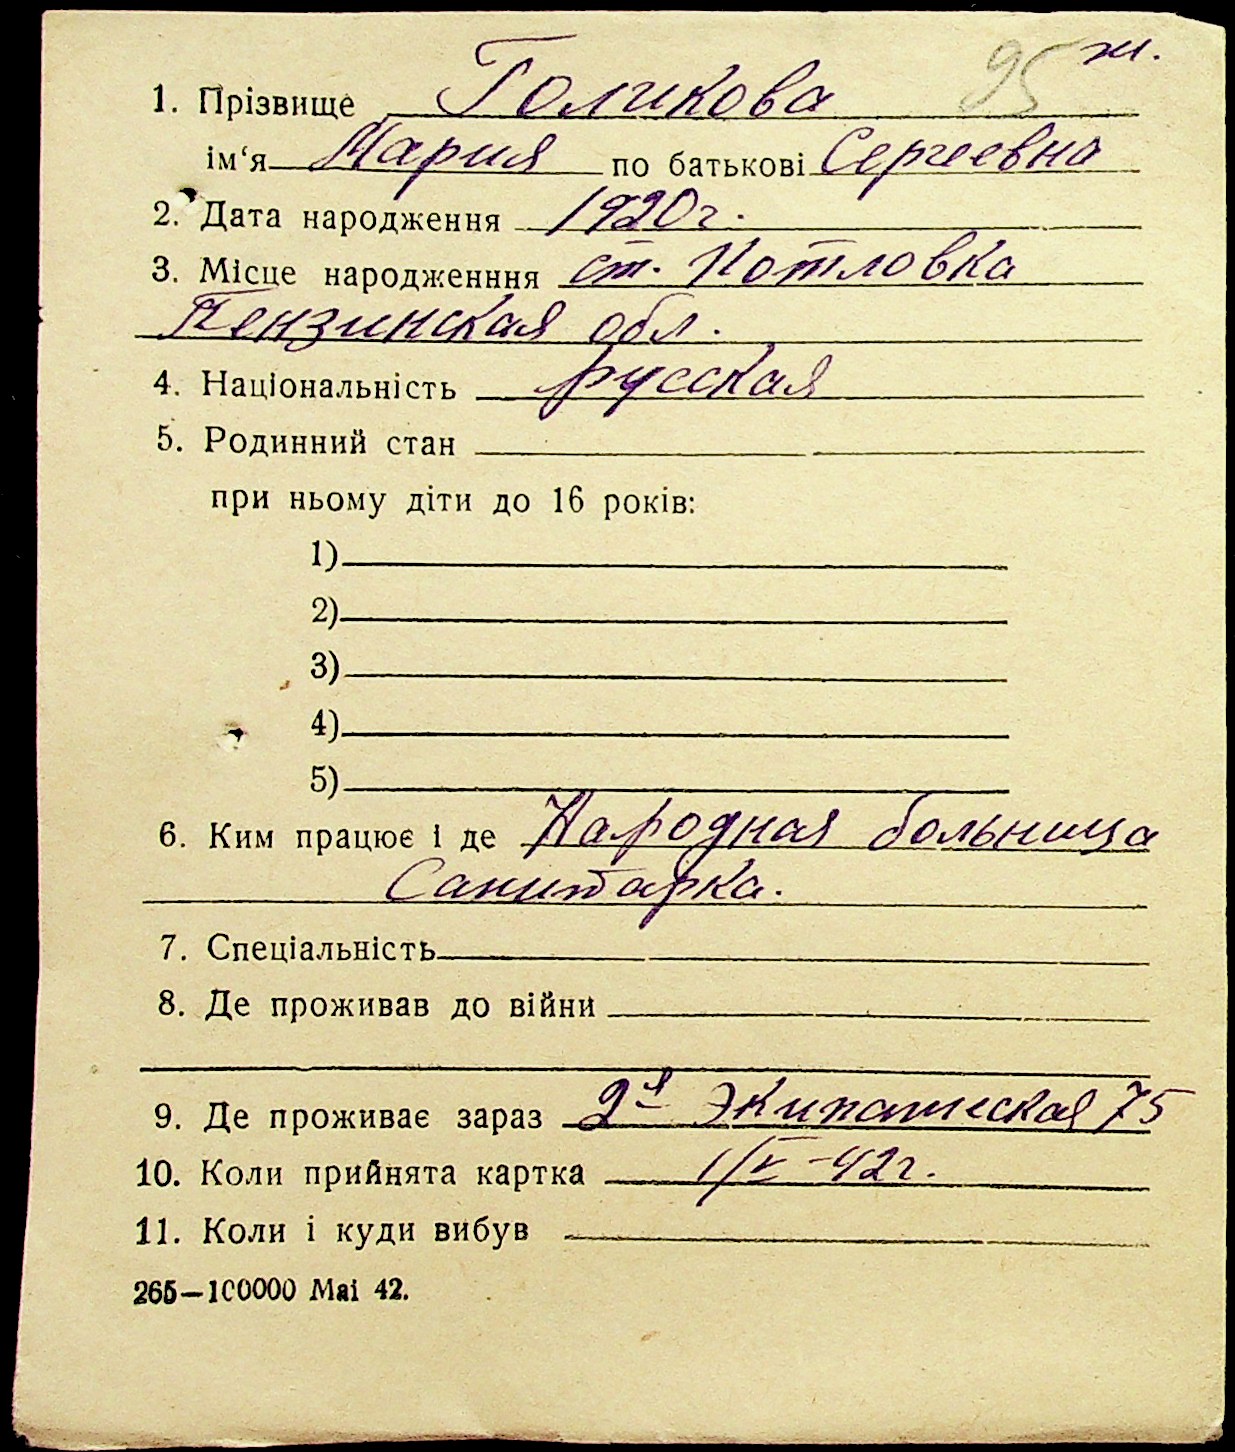 95 ж.
1. Прізвище Голикова
ім‘я Мария по батькові Сергеевна
2. Дата народження 1920 г.
3. Місце народженння ст. Котловка
Пензинская обл.
4. Національність русская
5. Родинний стан
при ньому діти до 16 років:
1)
2)
3)
4)
5)
6. Ким працює і де Народная больница
Санитарка.
7. Спеціальність
8. Де проживав до війни
9. Де проживає зараз 2я Экипажеская 75
10. Коли прийнята картка 1/V-42г.
11. Коли і куди вибув
265—100000 Mai 42.